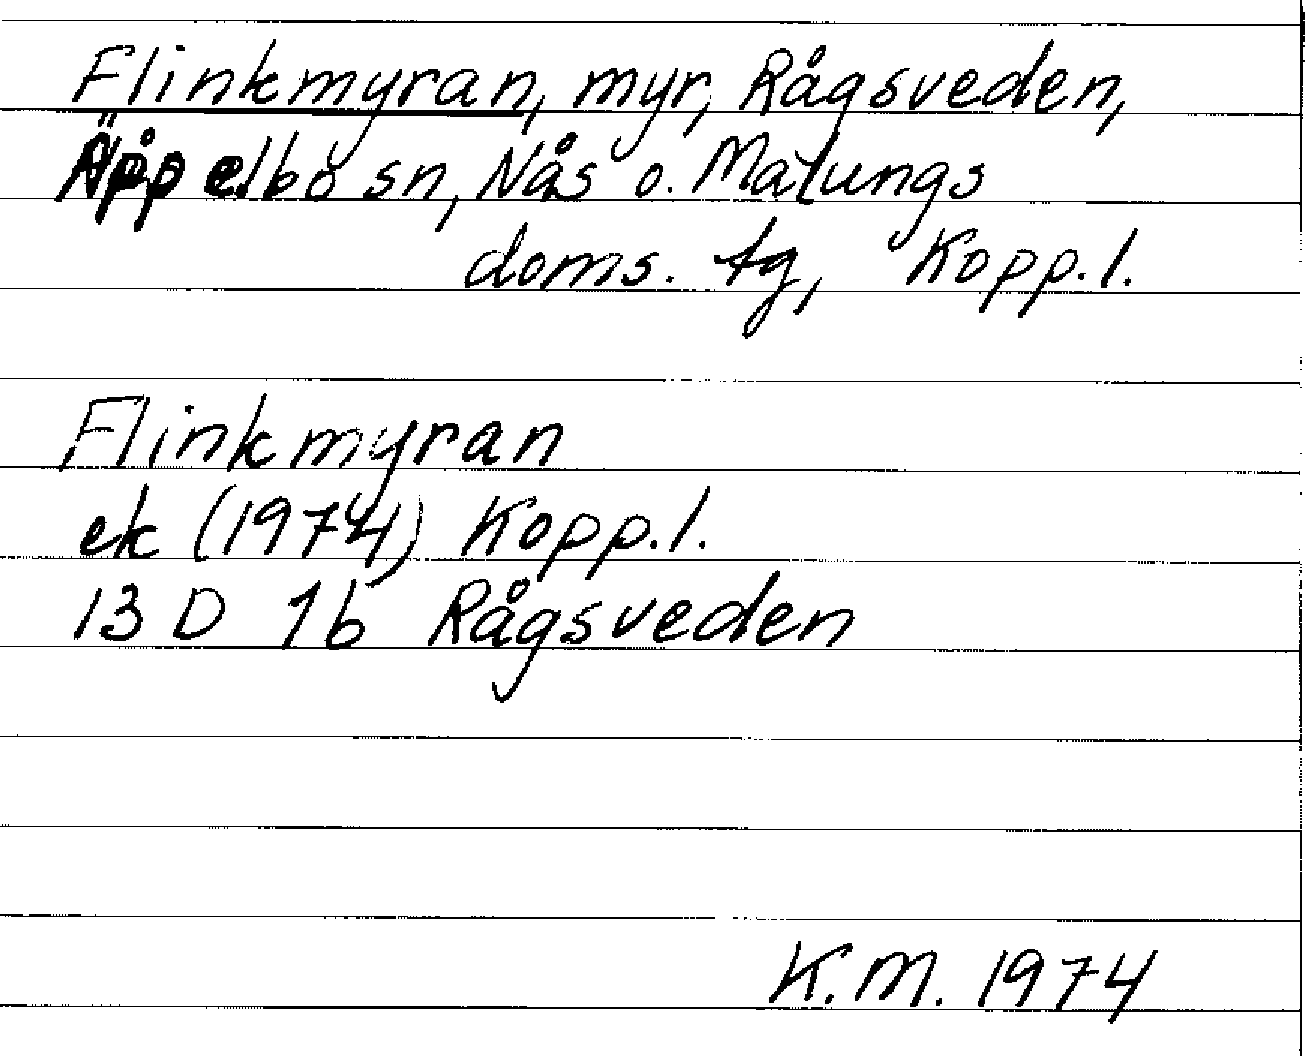 Flinkmyran, myr, Rågsveden,
Äppelbo sn, Nås o. Malungs
doms. tg, Kopp.l.
Flinkmyran
ek (1974) Kopp.l.
13 D 1b Rågsveden
K.M. 1974